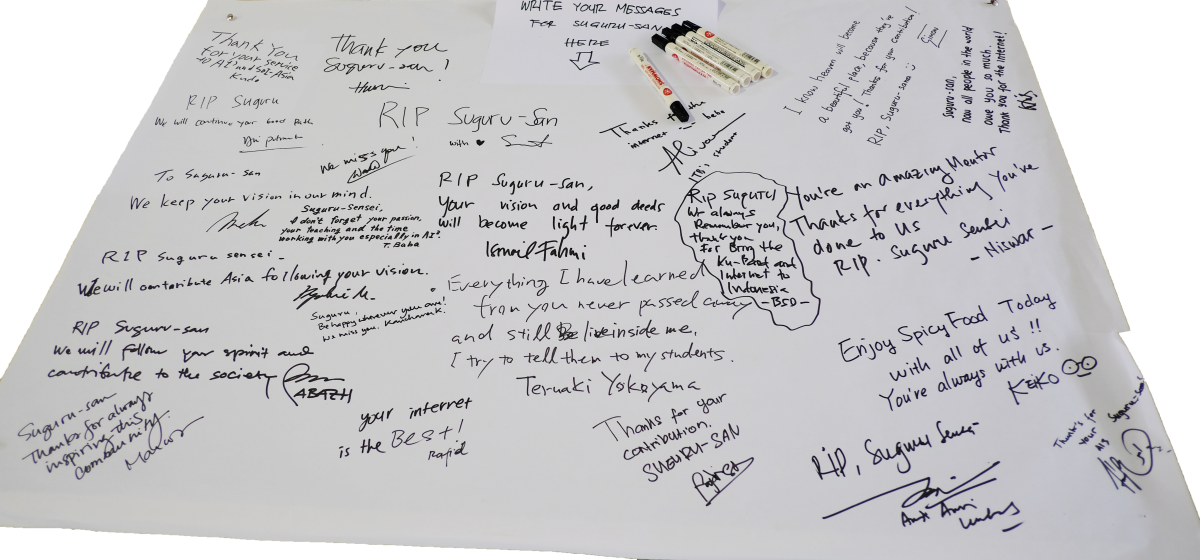 WRITE YOUR MESSAGES
FOR SUGURU-SAN
HERE
Thank You
for your service
to AI3 and SOI-Asia
Kudo
Thank you
Suguru-san!
RIP Suguru
We will continue your Good Path
RIP Suguru-San
with
We miss you!
To Suguru-san
We keep your vision in our mind.
Suguru-Sensei,
I don't forget your passion,
your teaching and the time
working with you especially in AI3
T. Baba
RIP Suguru sensei-
We will contribute Asia following your vision.
Suguru,
Be happy wherever you are!
We miss you,
RIP Suguru-san
We will follow your spirit and
contribute to the society
ABAZH
Suguru-san
Thanks for always
inspiring this
community.
Marcos
RIP Suguru-san,
Your vision and good deeds
will become light forever.
Ismail Fahmi
Everything I have learned
from you never passed away
and still live inside me.
I try to tell them to my students.
Teruaki Yokoyama
your internet
is the BEST!
Rapid
Thanks for your
contribution.
SUGURU-SAN
Thanks for the
internet
haha
ITB's student
Rip Suguru
We always
Remember you,
thank you
For Bring the
Ku-Band and
Internet to
Indonesia
-BSD-
I know heaven will become
a beautiful place, because they've
got you! Thanks for your contribution!
RIP, Suguru-san
Suguru-san,
now all people in the world
owe you so much.
Thank you for the internet!
You're an amazing Mentor
Thanks for everything You've
done to us
RIP. Suguru Sensei
- Niswar -
Enjoy Spicy Food Today
with all of us!!
You're always with us.
KEIKO
RIP, Suguru Sensei
Thank's for
your
Suguru-san!